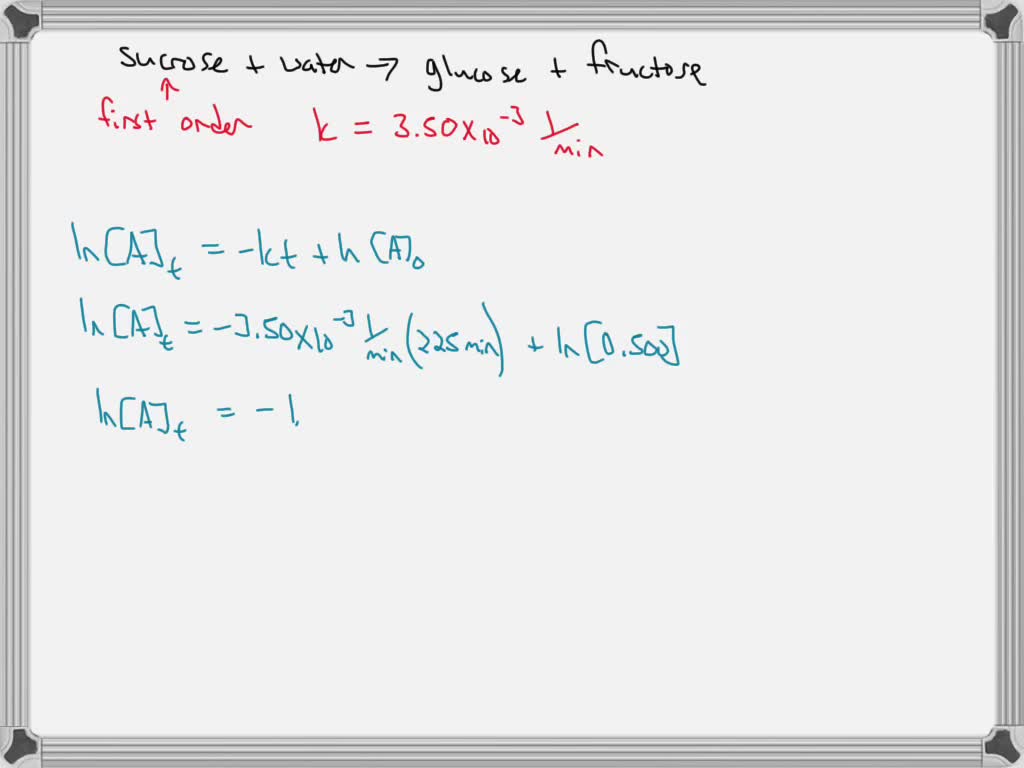 sucrose + water → glucose + fructose
↑
first order k = 3.50×10⁻³ 1/min
ln[A]ₜ = -kt + ln [A]₀
ln[A]ₜ = -3.50×10⁻³ 1/min (225 min) + ln[0.500]
ln[A]ₜ = -1.